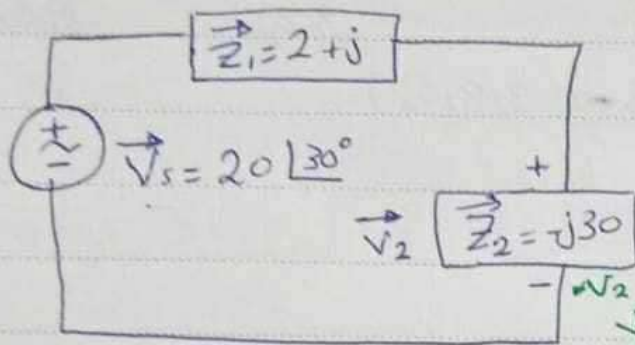 Z₁ = 2 + j
+
−
Vs = 20 ∠30°
+
V₂
Z₂ = -j30
−
V₂